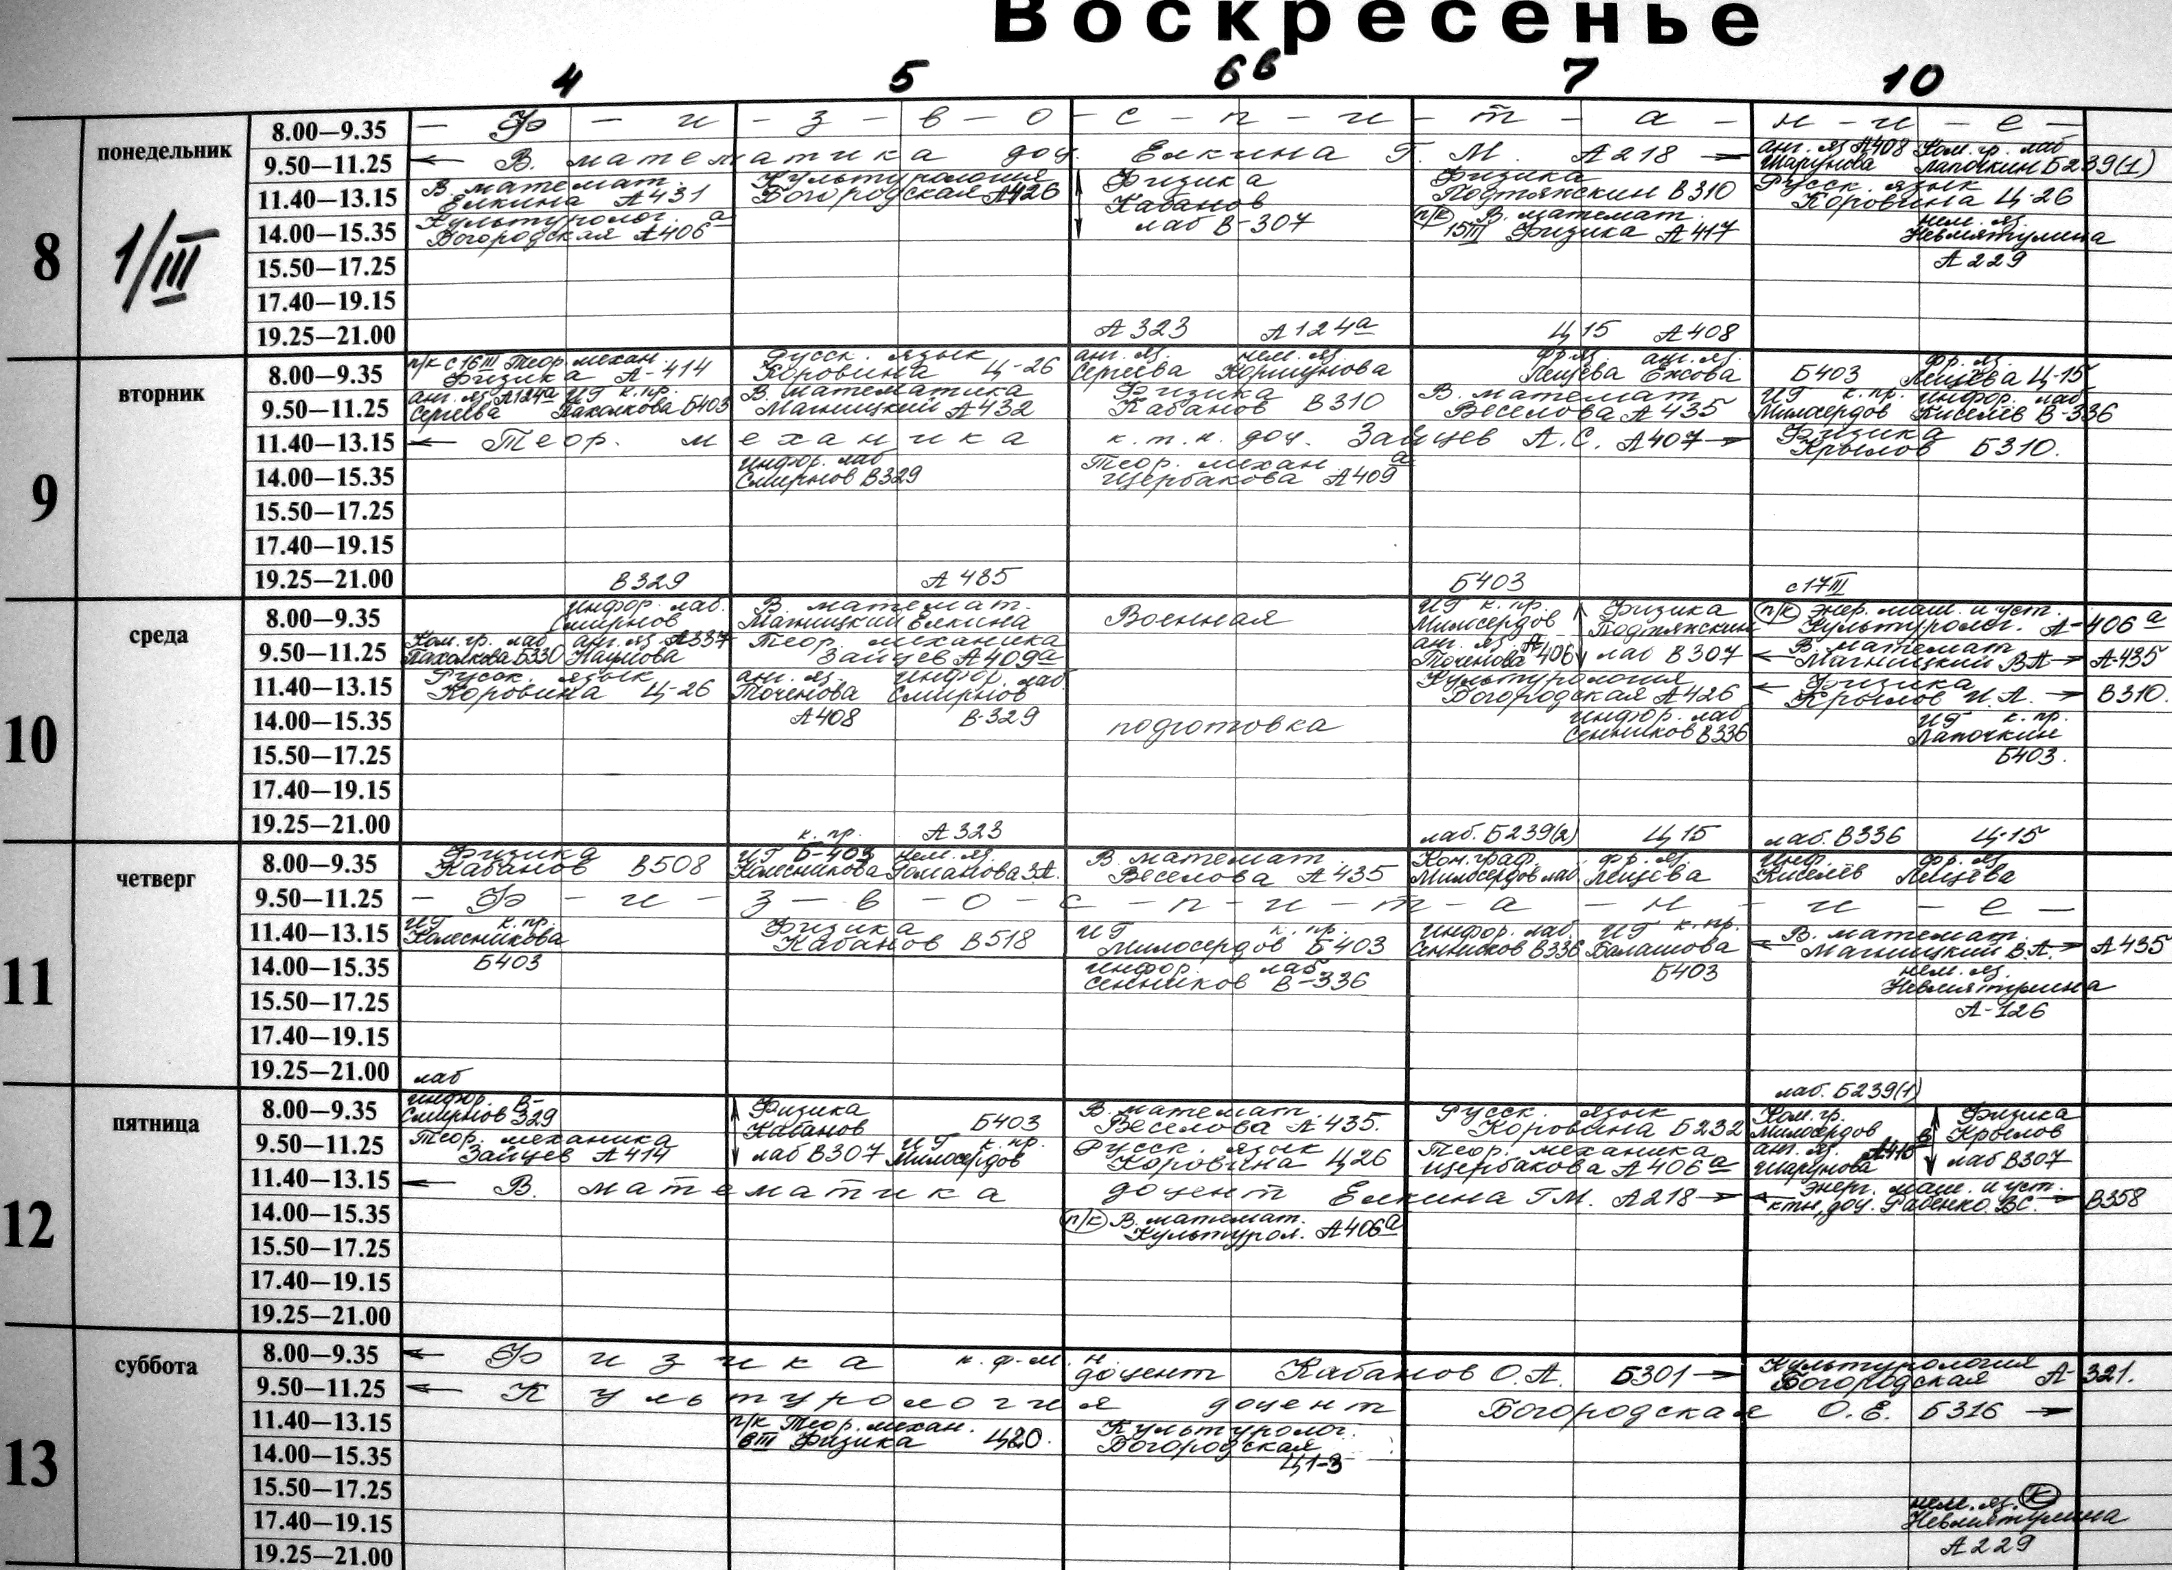 Воскресенье
4 5 6в 7 10
8
1/III
понедельник
8.00—9.35 — Ф — и — з — в — о — с — п — и — т — а — н — и — е —
9.50—11.25 ← В. математика доц. Елкина Г. М. А218 → анг. яз А408 Ком. гр. лаб
Шарунова Лапочкин Б239(1)
11.40—13.15 В. математ. Культурология Физика Физика Русск. язык
Елкина А431 Богородская А426 Кабанов Подтяжкин В310 Коровина Ц-26
14.00—15.35 Культуролог. лаб В-307 п/к В. математ. нем. яз.
Богородская А406а 15III Физика А417 Невмятулина
15.50—17.25 А229
17.40—19.15
19.25—21.00 А323 А124а Ц15 А408
9
вторник
8.00—9.35 п/к с 16III Теор. механ. Русск. язык анг. яз. нем. яз. фр. яз. анг. яз. фр. яз.
Физика А-414 Коровина Ц-26 Сергеева Коршунова Лещева Ежова Б403 Лещёва Ц-15
9.50—11.25 анг. яз А124а ИГ к.пр. В. математика Физика В. математ ИГ к. пр. инфор. лаб
Сергеева Пахолкова Б403 Магницкий А432 Кабанов В310 Веселова А435 Милосердов Киселев В-336
11.40—13.15 ← Теор. механика к.т.н. доц. Зайцев А.С. А407 → Физика
Крылов Б310.
14.00—15.35 инфор. лаб Теор. механ
Смирнов В329 Щербакова А409а
15.50—17.25
17.40—19.15
19.25—21.00 В329 А435 Б403 с 17III
10
среда
8.00—9.35 инфор. лаб. В. математ. Военная ИГ к. пр. Физика п/к Энер. маш. и уст.
Смирнов Магницкий Елкина Милосердов Подтяжкин Культуролог. А-406а
9.50—11.25 Ком. гр. лаб анг. яз А337 Теор. механика анг. яз. А лаб В307 В. математ
Пахолкова Б330 Наумова Зайцев А409а Точенова 406 ← Магницкий ВА → А-435
11.40—13.15 Русск. язык анг. яз. инфор. лаб Культурология ← Физика
Коровина Ц-26 Точенова Смирнов Богородская А426 Крылов И.А. → В310.
14.00—15.35 А408 В-329 подготовка инфор. лаб ИГ к. пр.
Сенников В336 Лапочкин
15.50—17.25 Б403.
17.40—19.15
19.25—21.00 к. пр. А323 лаб. Б239(2) Ц15 лаб. В336 Ц-15
11
четверг
8.00—9.35 Физика ИГ Б-403 нем. яз. В. математ. Ком. граф. фр. яз. Инф. фр. яз
Кабанов В508 Колесникова Романова З.А. Веселова А435 Милосердов лаб. Лещёва Киселёв Лещёва
9.50—11.25 — Ф — и — з — в — о — с — п — и — т — а — н — и — е —
11.40—13.15 ИГ к.пр. Физика ИГ к. пр. Инфор. лаб. ИГ к. пр. В. математ.
Колесникова Кабанов В518 Милосердов Б403 Сенников В336 Балашова ← Магницкий В.А. → А435
14.00—15.35 Б403 инфор. лаб Б403 нем. яз.
Сенников В-336 Невмятулина
15.50—17.25 А-126
17.40—19.15
19.25—21.00 лаб лаб. Б239(1)
12
пятница
8.00—9.35 инфор. В- Физика В. математ. Русск. язык Ком. гр. Физика
Смирнов 329 Кабанов Б403 Веселова А435. Коровина Б232 Милосердов Крылов
9.50—11.25 Теор. механика лаб В307 ИГ к. пр. Русск. язык Теор. механика анг. яз. лаб В307
Зайцев А414 Милосердов Коровина Ц26 Щербакова А406а Шарунова
11.40—13.15 ← В. математика доцент Елкина Г.М. А218 → ← Энерг. маш. и уст. →
ктн, доц. Рабенко ВС. В358
14.00—15.35 п/к В. математ.
Культурол. А406а
15.50—17.25
17.40—19.15
19.25—21.00
13
суббота
8.00—9.35 ← Физика к.ф-м.н доцент Кабанов О.А. Б301 → Культурология
Богородская А-321.
9.50—11.25 ← Культурология доцент Богородская О.Е. Б316 →
11.40—13.15 п/к Теор. механ. Культуролог.
6III Физика Ц20. Богородская
14.00—15.35 Ц1-3
15.50—17.25
17.40—19.15 нем. яз. К
Невмятулина
19.25—21.00 А229